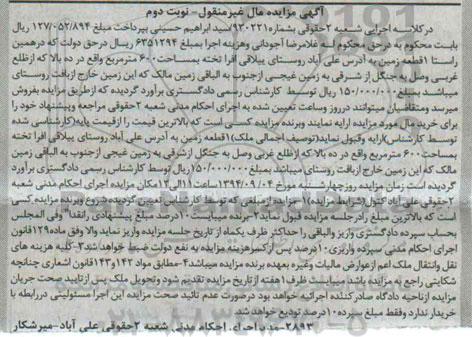 آگهی مزایده مال غیرمنقول - نوبت دوم
درکلاسه اجرایی شعبه ۲حقوقی بشماره۹۲۰۲۲۱/سید ابراهیم حسینی بپرداخت مبلغ ۱۲۷/۰۵۲/۸۹۴ ریال
بابت محکوم به درحق محکوم لـه غلامرضا آجودانی وهزینه اجرا بمبلغ ۶۳۵۱۲۹۴ ریـال درحق دولت که درهمین
راستا ۱قطعه زمین به آدرس علی آباد روستای ییلاقی افرا تخته بمساحت۶۰۰ مترمربع واقع در ده بالا که ازضلع
غربی وصل به جنگل از شرقی به زمین غیجی ازجنوب به الباقی زمین مالک که این زمین خارج ازبافت روستای
میباشد بمبلغ۱۵۰/۰۰۰/۰۰۰ ریال توسط کارشناس رسمی دادگستری برآورد گردیده که ازطریق مزایده بفروش
میرسد ومتقاضیان میتوانند درروز وساعت تعیین شده به اجرای احکام مدنی شعبه ۲حقوقی مراجعه وپیشنهاد خود را
برای خرید مال مورد مزایده ارایه نمایند وبرنده مزایده کسی است که بالاترین قیمت را ازقیمت پایه(کارشناسی شده
توسط کارشناس)ارایه وقبول نماید(توصیف اجمالی ملک)۱قطعه زمین به آدرس علی آباد روستای ییلاقی افرا تخته
بمساحت۶۰۰ مترمربع واقع در ده بالا که ازظلع غربی وصل به جنگل ازشرقی به زمین غیجی ازجنوب به الباقی زمین
مالک که این زمین خارج ازبافت روستای میباشد بمبلغ۱۵۰/۰۰۰/۰۰۰ریال توسط کارشناس رسمی دادگستری برآورد
گردیده است زمان مزایده روزچهارشنبه مورخ ۱۳۹۴/۰۹/۰۴ساعت۱۱الی۱۲مکان مزایده اجرای احکام مدنی شعبه
۲حقوقی علی آبادکتول(شرایط مزایده)۱-مزایده ازمبلغی که توسط کارشناس تعیین گردیده شروع وبرنده مزایده کسی
است که بالاترین مبلغ رادرجلسه مزایده قبول نماید۲-برنده میبایست۱۰درصد مبلغ پیشنهادی رانقدا" وفی المجلس
بحساب سپرده دادگستری واریز والباقی را حداکثر ظرف یکماه از تاریخ جلسه مزایده واریز نماید والا وفق ماده۱۲۹قانون
اجرای احکام مدنی سپرده واریزی۱۰درصد پس ازکسرهزینه مزایده به نفع دولت ضبط خواهد شد۳-کلیه هزینه های
نقل وانتقال ملک اعم ازعوارض مالیات وغیره بعهده برنده مزایده میباشد۴-مطابق مواد ۱۴۲و۱۴۳قانون اشعاری چنانچه
شکایتی راجع به مزایده باشد میبایست ظرف۱هفته از تاریخ مزایده تقدیم شود وتحویل ملک پس ازتایید صحت جریان
مزایده ازناحیه دادگاه صادرکننده اجرائیه خواهد بود درصورت عدم تائید صحت مزایده این اجرا مسئولیتی دررابطه با
خریدار ندارد وفقط مبلغ سپرده۱۰درصد تودیع خواهد شد.
۲۸۹۳-مدیراجرای احکام مدنی شعبه ۲حقوقی علی آباد-میرشکار